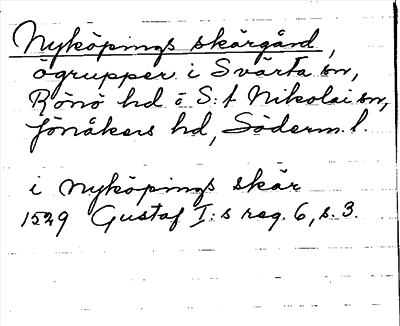 Nyköpings skärgård,
ögrupper i Svärta sn,
Rönö hd o S:t Nikolai sn,
Jönåkers hd, Söderm. l.
i nyköpings skär
1529 Gustaf I:s reg. 6, s. 3.